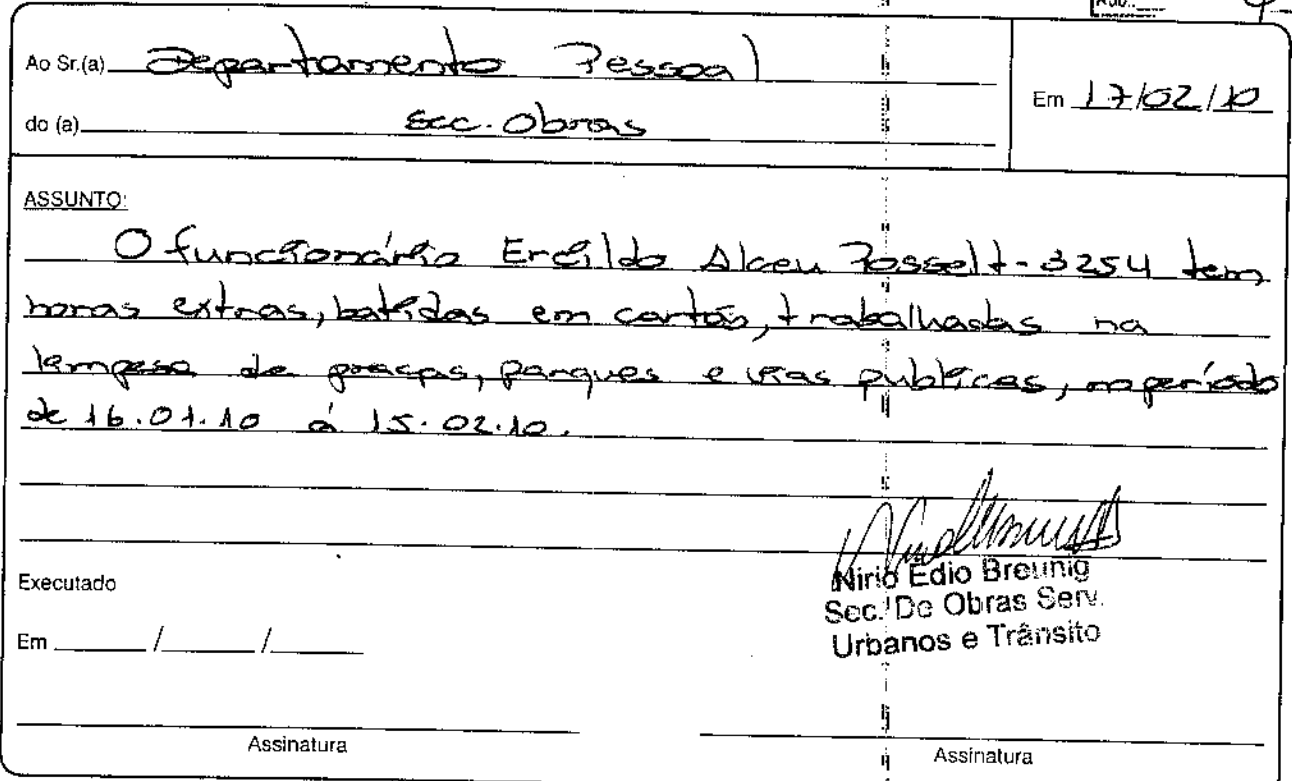 Rub.:
Ao Sr.(a) Departamento Pessoal
Em 17/02/10
do (a) Sec. Obras
ASSUNTO:
O funcionário Ercildo Alceu Posselt - 3254 tem
horas extras, batidas em cartão, trabalhadas na
limpesa de praças, parques e vias publicas, no período
de 16.01.10 á 15.02.10.
Nirio Edio Breunig
Sec. De Obras Serv.
Urbanos e Trânsito
Executado
Em / /
Assinatura
Assinatura